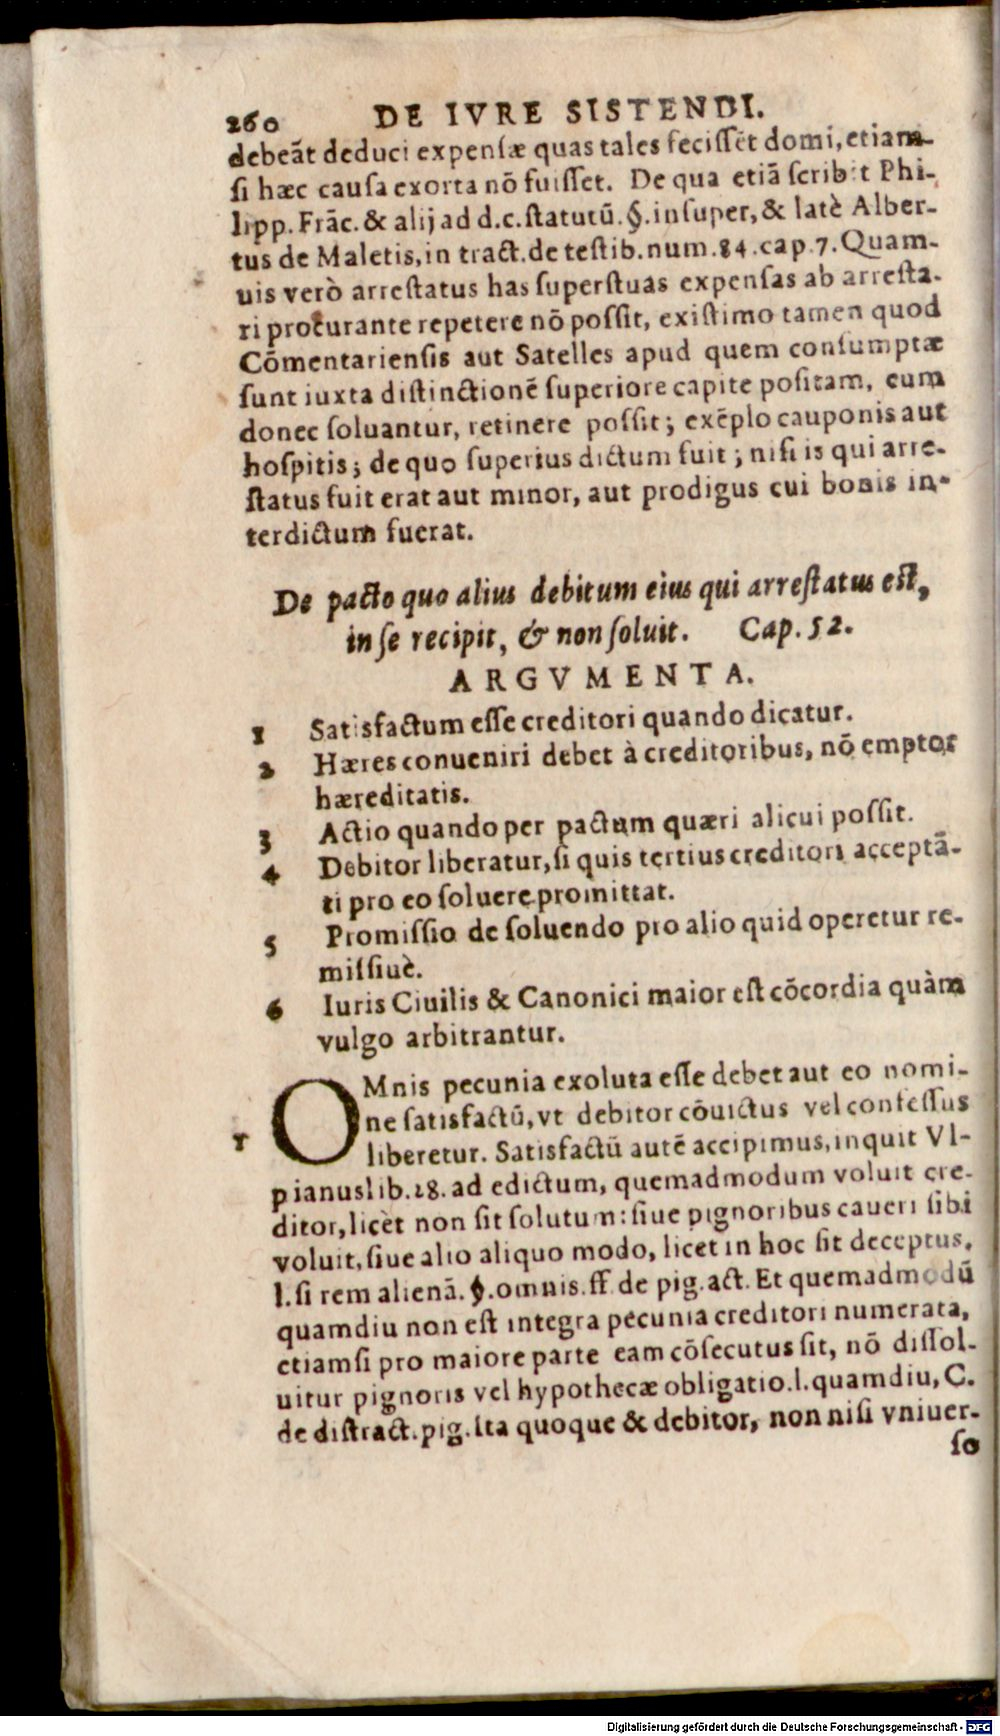 260 DE IVRE SISTENDI.
debeāt deduci expensæ quas tales fecissēt domi, etiam-
si hæc causa exorta nō fuisset. De qua etiā scribit Phi-
lipp. Frāc. & alij ad d.c. statutū. §. insuper, & latè Alber-
tus de Maletis, in tract. de testib. num. 84. cap. 7. Quam-
uis verò arrestatus has superstuas expensas ab arresta-
ri procurante repetere nō possit, existimo tamen quod
Cōmentariensis aut Satelles apud quem consumptæ
sunt iuxta distinctionē superiore capite positam, eum
donec soluantur, retinere possit; exēplo cauponis aut
hospitis; de quo superius dictum fuit; nisi is qui arre-
status fuit erat aut minor, aut prodigus cui bonis in-
terdictum fuerat.
De pacto quo alius debitum eius qui arrestatus est,
in se recipit, & non soluit. Cap. 52.
ARGVMENTA.
1 Satisfactum esse creditori quando dicatur.
2 Hæres conueniri debet à creditoribus, nō emptor
hæreditatis.
3 Actio quando per pactum quæri alicui possit.
4 Debitor liberatur, si quis tertius creditori acceptā-
ti pro eo soluere promittat.
5 Promissio de soluendo pro alio quid operetur re-
missiuè.
6 Iuris Ciuilis & Canonici maior est cōcordia quàm
vulgo arbitrantur.
OMnis pecunia exoluta esse debet aut eo nomi-
ne satisfactū, vt debitor cōuictus vel confessus
1 liberetur. Satisfactū autē accipimus, inquit Vl-
pianus lib. 28. ad edictum, quemadmodum voluit cre-
ditor, licèt non sit solutum: siue pignoribus caueri sibi
voluit, siue alio aliquo modo, licet in hoc sit deceptus.
l. si rem alienā. §. omnis. ff. de pig. act. Et quemadmodū
quamdiu non est integra pecunia creditori numerata,
etiamsi pro maiore parte eam cōsecutus sit, nō dissol-
uitur pignoris vel hypothecæ obligatio. l. quamdiu, C.
de distract. pig. Ita quoque & debitor, non nisi vniuer-
so
Digitalisierung gefördert durch die Deutsche Forschungsgemeinschaft - DFG